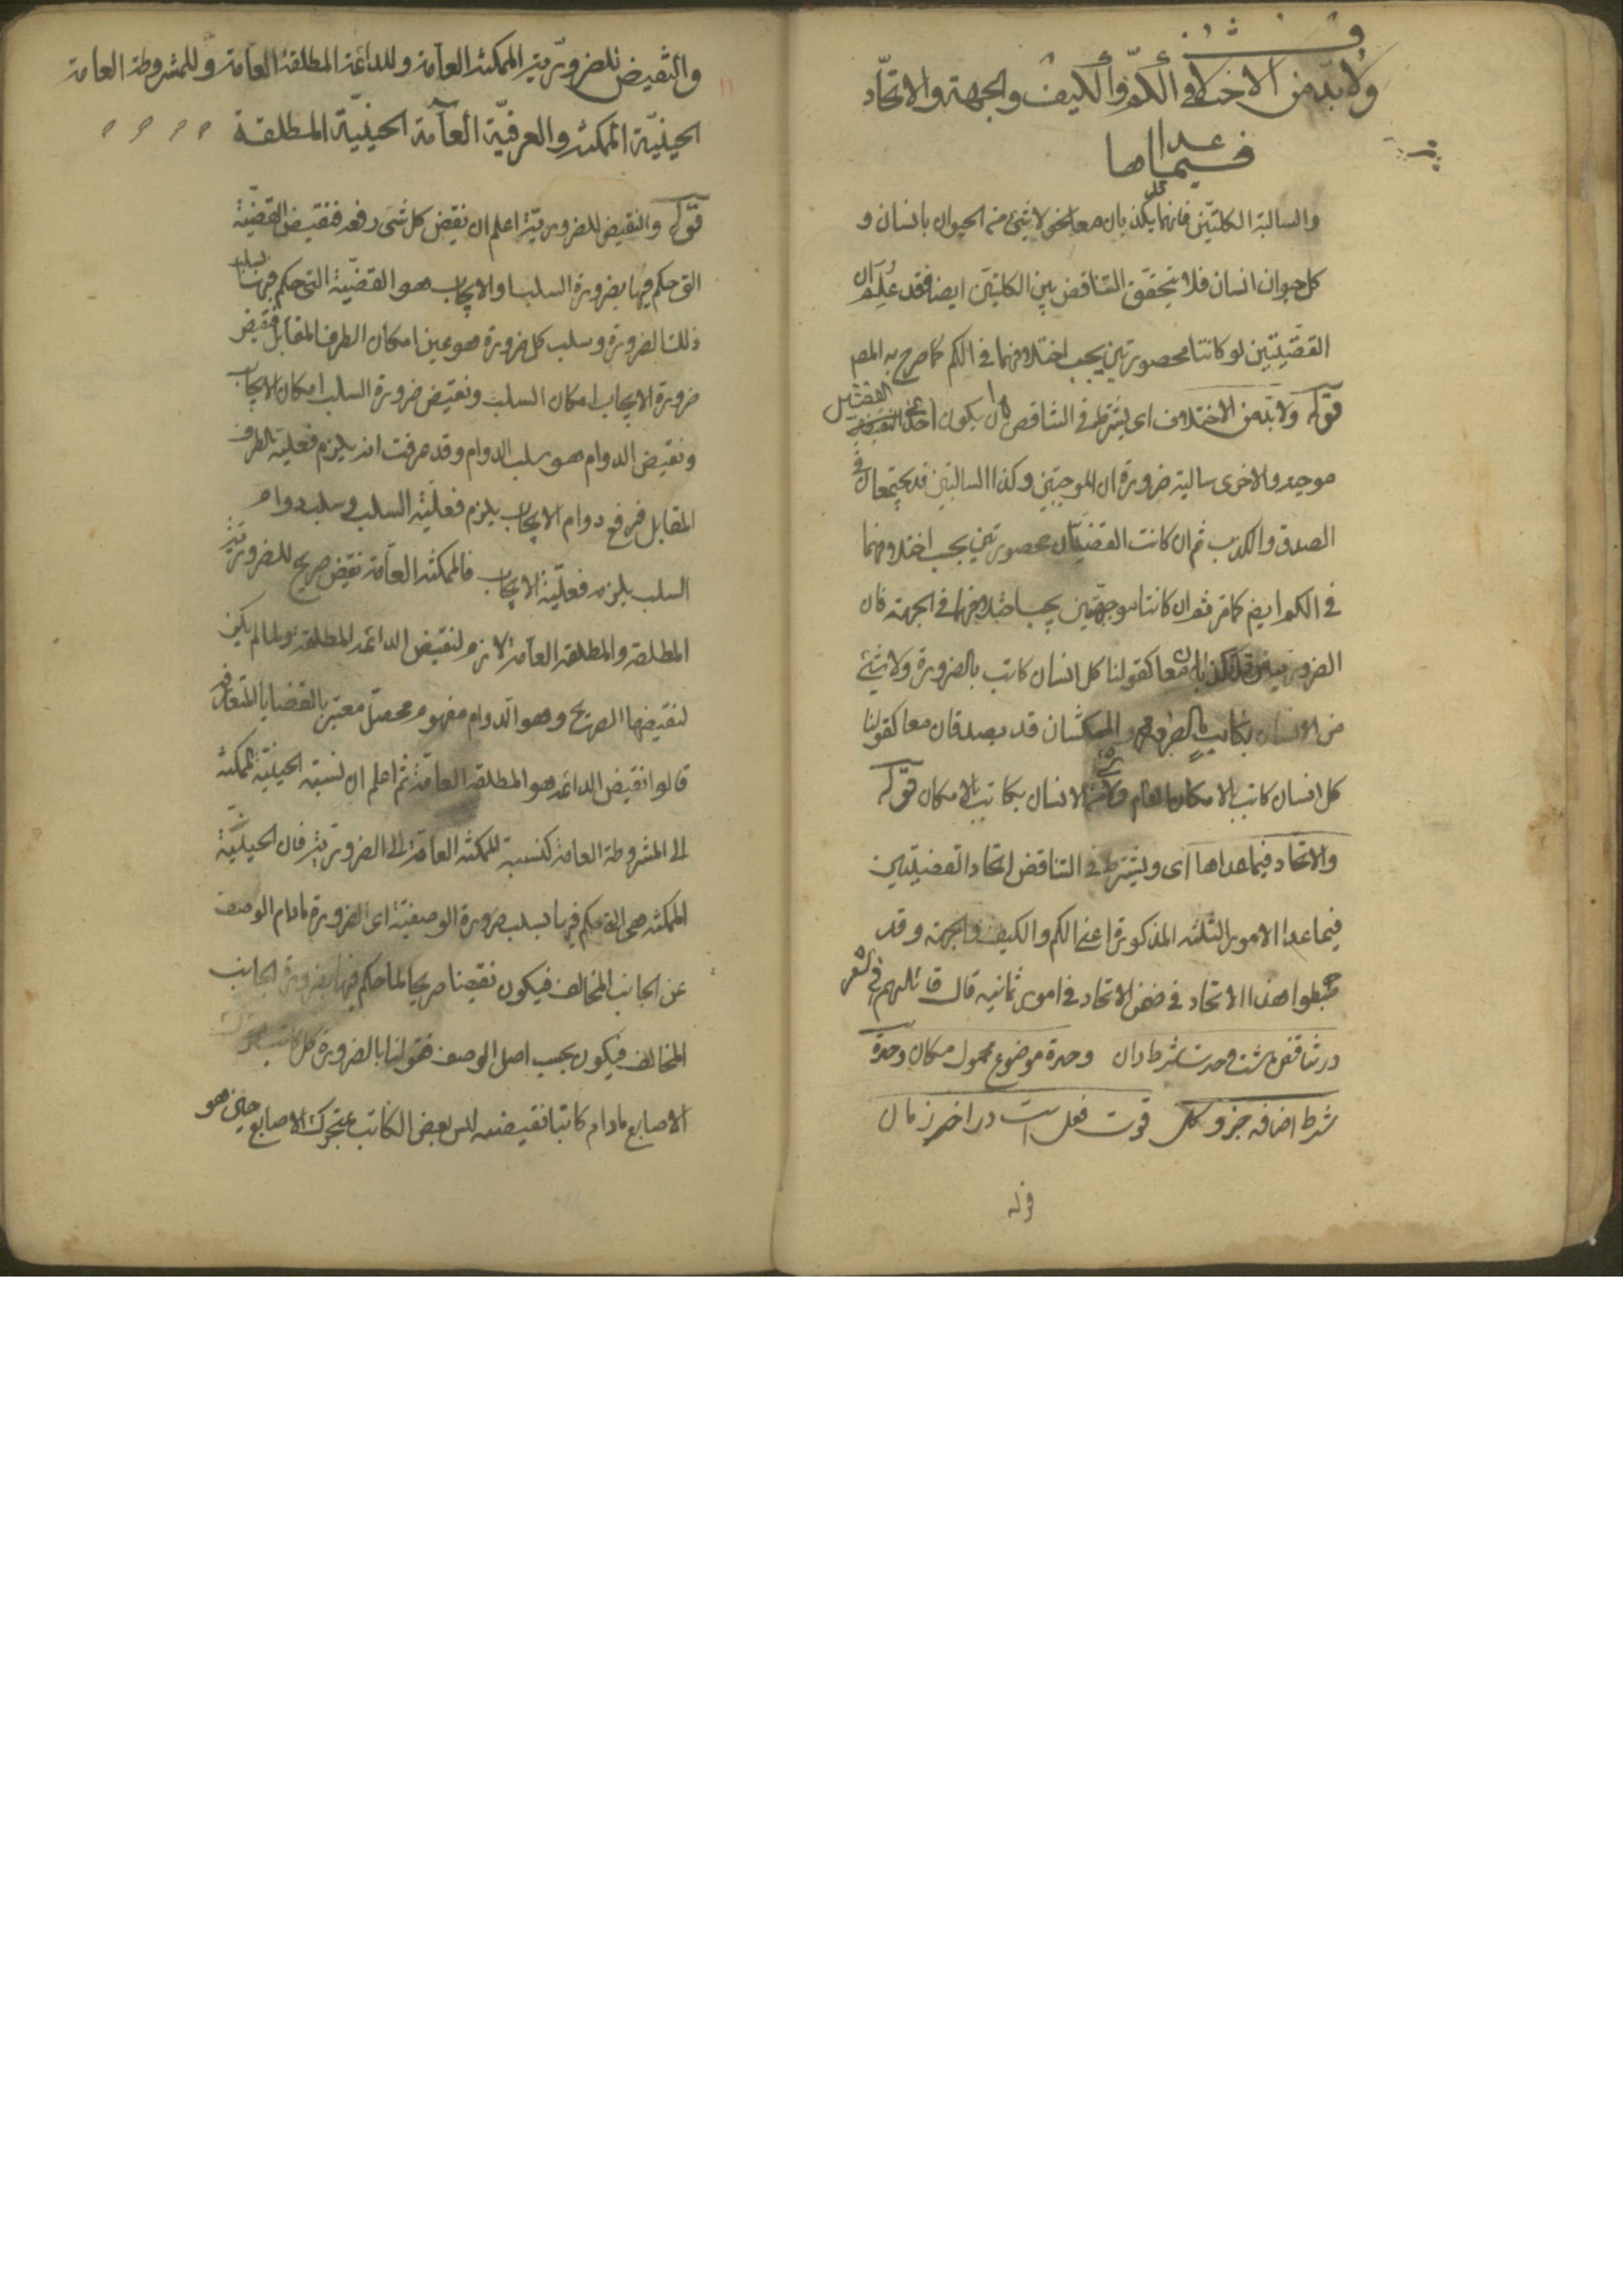 ولا بد من الاختلاف في الكم والكيف والجهة والاتحاد
فيما عداها
والسالبة الكليتين فانهما يكذبان معا نحو لا شئ من الحيوان بانسان و
كل حيوان انسان فلا يتحقق التناقض بين الكليتين ايضا فقد علم ان
القضيتين لو كانتا محصورتين يجب اختلافهما في الكم كما صرح به المص
قوله ولا بد من الاختلاف اى يشترط في التناقض ان يكون احدى القضيتين
موجبه والاخرى سالبة ضرورة ان الموجبتين وكذا السالبتين قد يجتمعان في
الصدق والكذب ثم ان كانت القضيتان محصورتين يجب اختلافهما
في الكم ايضا كما مر ثم ان كانتا موجهتين يجب اختلافهما في الجهة فان
الضروريتين قد تكذبان معا كقولنا كل انسان كاتب بالضرورة ولا شئ
من الانسان بكاتب بالضرورة والممكنتان قد يصدقان معا كقولنا
كل انسان كاتب بالامكان العام ولا شئ من الانسان بكاتب بالامكان قوله
والاتحاد فيما عداها اى ويشترط في التناقض اتحاد القضيتين
فيما عدا الامور الثلثه المذكورة اعني الكم والكيف والجهة وقد
ضبطوا هذا الاتحاد في ضمن الاتحاد في امور ثمانيه قال قائلهم في الشعر
در تناقض هشت وحدت شرط دان وحدة موضوع محمول مكان وحدة
شرط اضافه جزو كل قوت فعل است در اخر زمان
قوله
والنقيض للضرورية الممكنة العامة وللدائمة المطلقة العامة وللمشروطة العامة
الحينية الممكنة والعرفية العامة الحينية المطلقة
قوله والنقيض للضرورية اعلم ان نقيض كل شئ رفعه فنقيض القضية
التى حكم فيها بضرورة السلب او الايجاب هو القضية التى حكم فيها بسلب
ذلك الضرورة وسلب كل ضرورة هو عين امكان الطرف المقابل فنقيض
ضرورة الايجاب امكان السلب ونقيض ضرورة السلب امكان الايجاب
ونقيض الدوام هو سلب الدوام وقد عرفت انه يلزم فعلية الطرف
المقابل فرفع دوام الايجاب يلزم فعلية السلب وسلب دوام
السلب يلزمه فعلية الايجاب فالممكنة العامة نقيض صريح للضرورية
المطلقة والمطلقة العامة لازم لنقيض الدائمة المطلقة ولما لم يكن
لنقيضها الصريح وهو الدوام مفهوم محصل معتبر بالقضايا المتعارفة
قالوا نقيض الدائمه هو المطلقة العامة ثم اعلم ان نسبة الحينية الممكنة
الى المشروطة العامة كنسبة الممكنة العامة الى الضرورية فان الحينية
الممكنة هى التى حكم فيها بسلب ضرورة الوصفية اى الضرورة مادام الوصف
عن الجانب المخالف فيكون نقيضا صريحا لما حكم فيها بضرورة الجانب
المخالف فيكون بحسب اصل الوصف فقولنا بالضرورة كل كاتب متحرك
الاصابع مادام كاتبا نقيضه ليس بعض الكاتب بمتحرك الاصابع حين هو